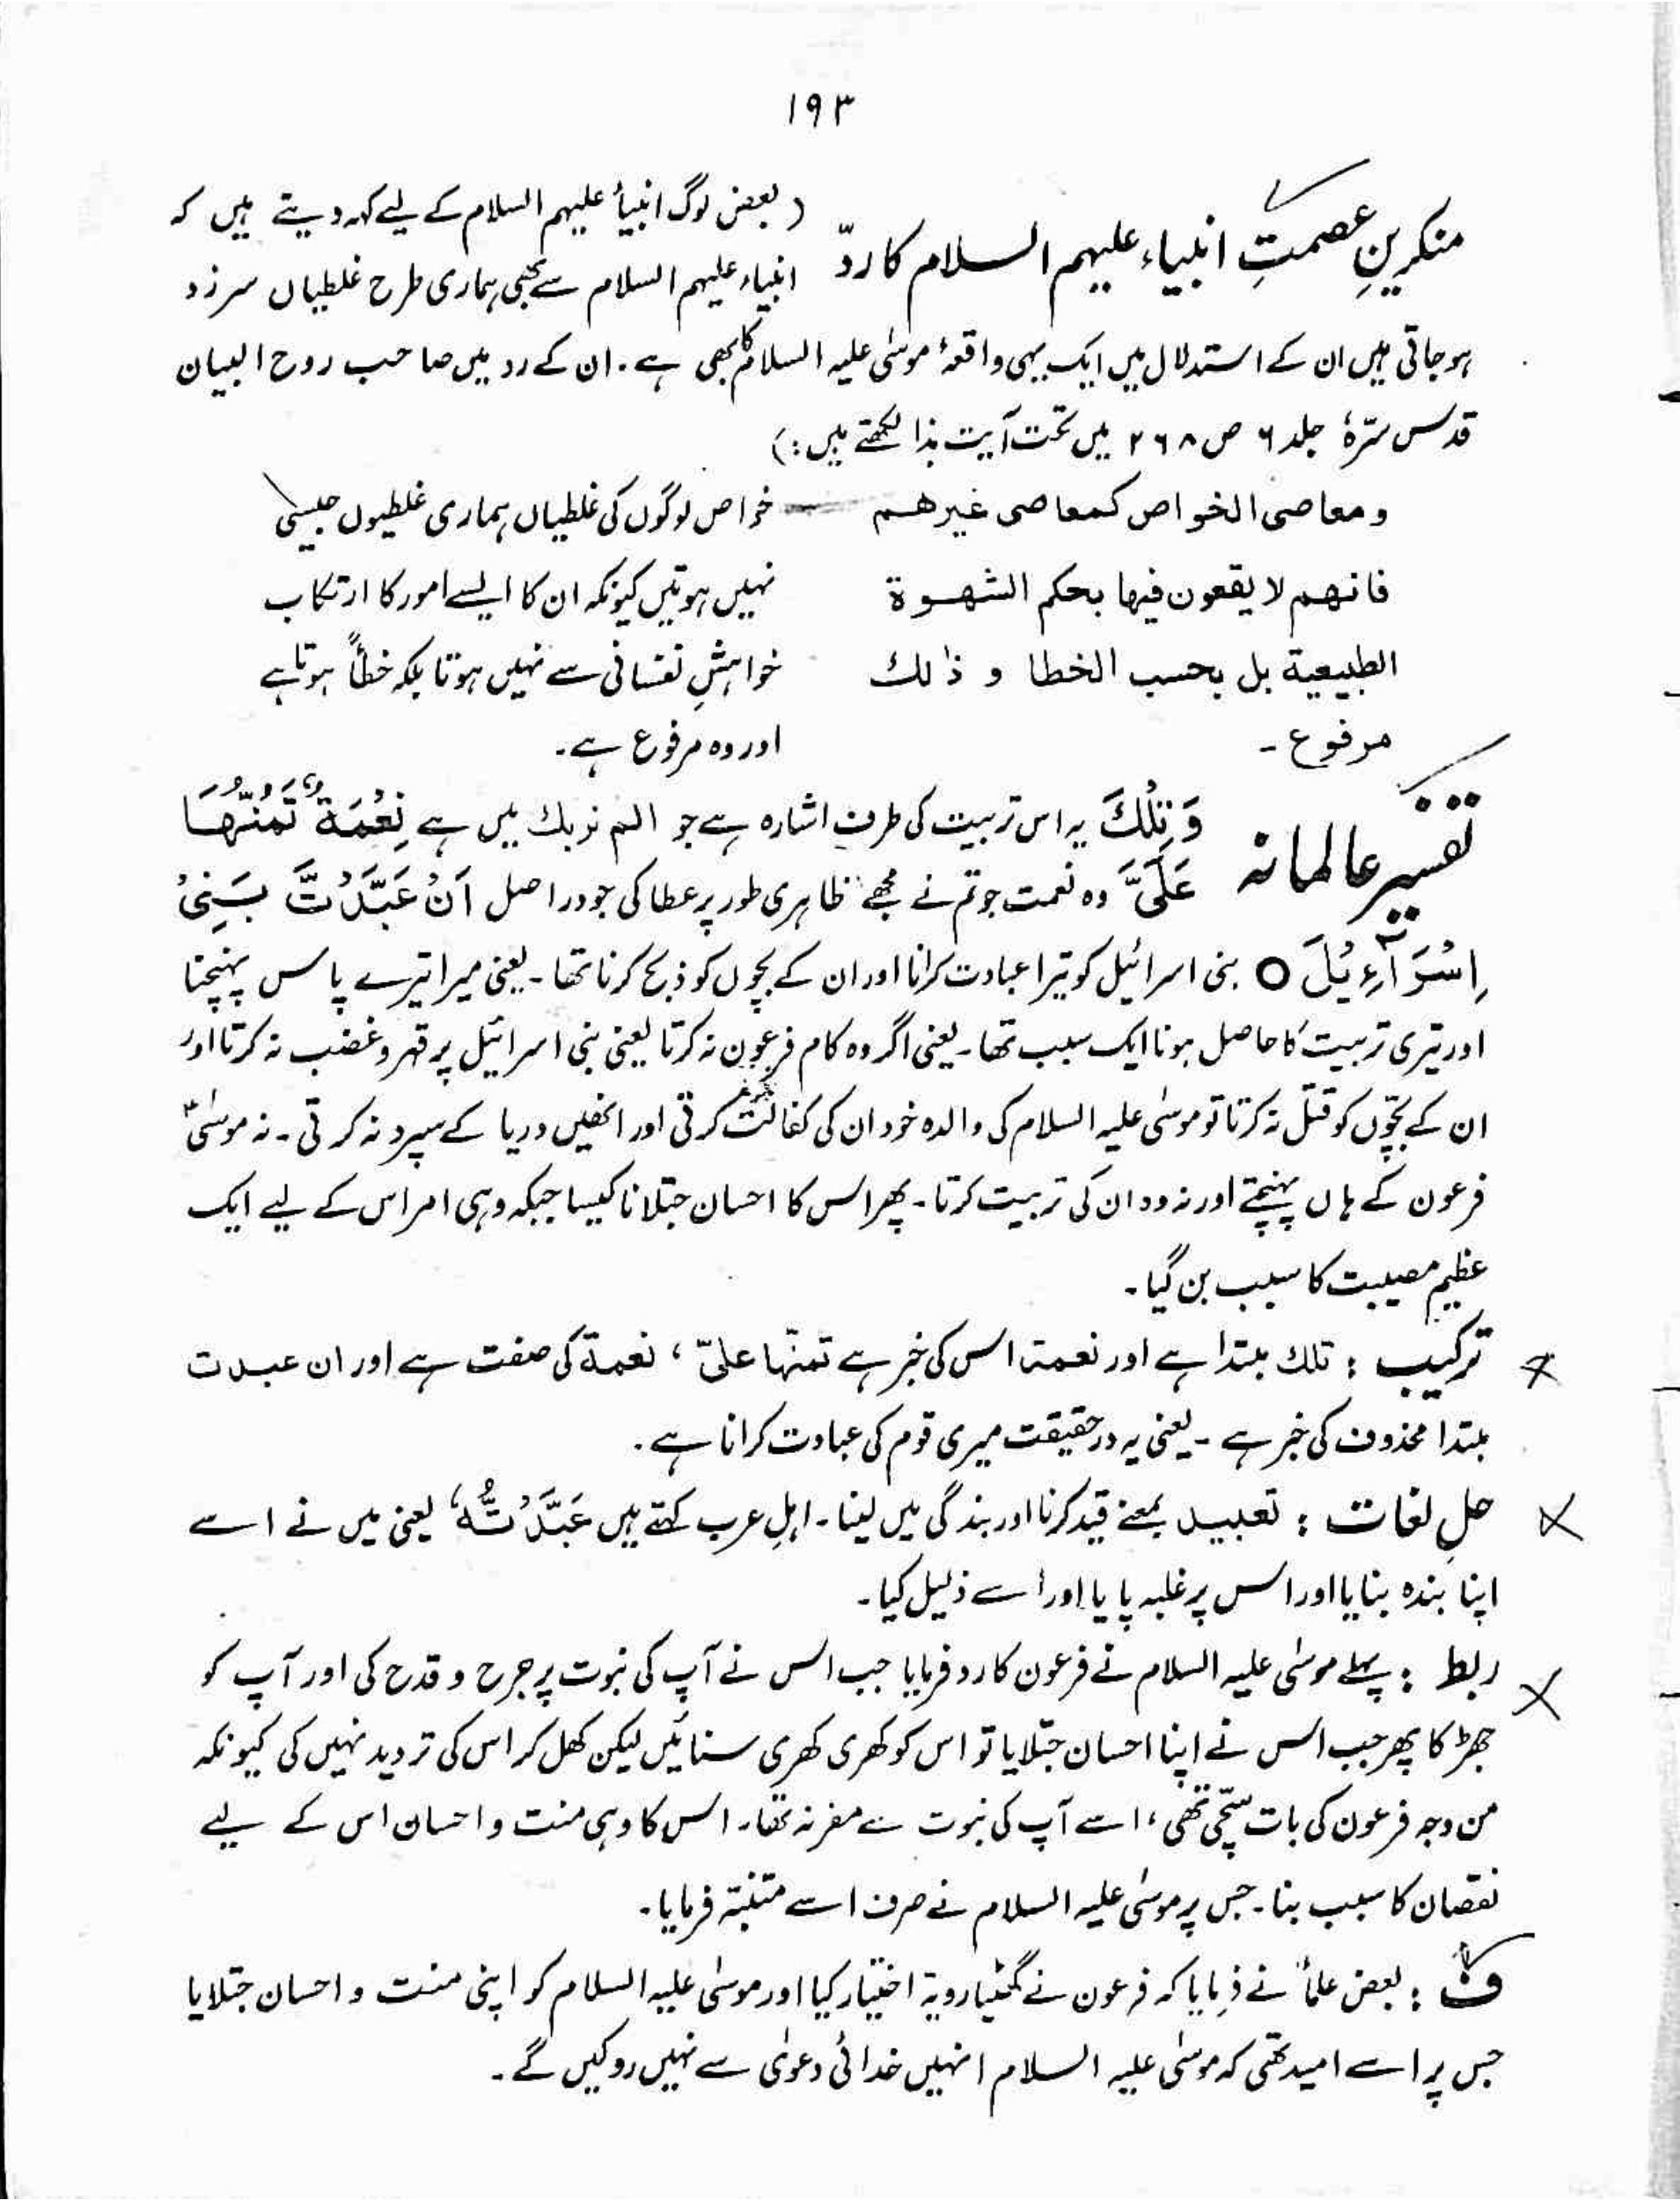 ۱۹۳
منکرینِ عصمتِ انبیاء علیہم السلام کا ردّ
( بعض لوگ انبیأ علیہم السلام کے لیے کہہ دیتے ہیں کہ
انبیاء علیہم السلام سے بھی ہماری طرح غلطیاں سرزد
ہوجاتی ہیں ان کے استدلال میں ایک یہی واقعۂ موسٰی علیہ السلام کا بھی ہے ۔ ان کے رد میں صاحب روح البیان
قدس سرّہٗ جلد ۶ ص ۲۶۸ میں تحت آیت ہذا لکھتے ہیں : )
ومعاصی الخواص کمعاصی غیرھم
فانھم لا یقعون فیھا بحکم الشھوۃ
الطبیعیۃ بل بحسب الخطا و ذالك
مرفوع ۔
خواص لوگوں کی غلطیاں ہماری غلطیوں جیسی
نہیں ہوتیں کیونکہ ان کا ایسے امور کا ارتکاب
خواہشِ نفسانی سے نہیں ہوتا بلکہ خطاً ہوتا ہے
اور وہ مرفوع ہے ۔
تفسیر عالمانہ
وَتِلْكَ یہ اس تربیت کی طرف اشارہ ہے جو الم نربك میں ہے نِعْمَةٌ تَمُنُّهَا
عَلَیَّ وہ نعمت جو تم نے مجھے ظاہری طور پر عطا کی جو دراصل اَنْ عَبَّدْتَّ بَنِیْٓ
اِسْرَآءِیْلَ ○ بنی اسرائیل کو تیرا عبادت کرانا اور ان کے بچوں کو ذبح کرنا تھا ۔ یعنی میرا تیرے پاس پہنچنا
اور تیری تربیت کا حاصل ہونا ایک سبب تھا ۔ یعنی اگر وہ کام فرعون نہ کرتا یعنی بنی اسرائیل پر قہر و غضب نہ کرتا اور
ان کے بچّوں کو قتل نہ کرتا تو موسٰی علیہ السلام کی والدہ خود ان کی کفالت کرتی اور انھیں دریا کے سپرد نہ کرتی ۔ نہ موسٰیؑ
فرعون کے ہاں پہنچتے اور نہ وہ ان کی تربیت کرتا ۔ پھر اس کا احسان جتلانا کیسا جبکہ وہی امر اس کے لیے ایک
عظیم مصیبت کا سبب بن گیا ۔
ترکیب : تلك مبتدا ہے اور نعمۃ اس کی خبر ہے تمنّہا علیّ ، نعمۃ کی صفت ہے اور ان عبدت
مبتدا محذوف کی خبر ہے ۔ یعنی یہ درحقیقت میری قوم کی عبادت کرانا ہے ۔
حلِ لغات : تعبید بمعنے قید کرنا اور بندگی میں لینا ۔ اہلِ عرب کہتے ہیں عَبَّدْتُّهٗ ، یعنی میں نے اسے
اپنا بندہ بنایا اور اس پر غلبہ پایا اور اسے ذلیل کیا ۔
ربط : پہلے موسٰی علیہ السلام نے فرعون کا رد فرمایا جب اس نے آپ کی نبوت پر جرح و قدح کی اور آپ کو
جھڑکا پھر جب اس نے اپنا احسان جتلایا تو اس کو کھری کھری سنائیں لیکن کھل کر اس کی تردید نہیں کی کیونکہ
من وجہ فرعون کی بات سچّی تھی ، اسے آپ کی نبوت سے مفر نہ تھا ۔ اس کا وہی منت و احسان اس کے لیے
نقصان کا سبب بنا ۔ جس پر موسٰی علیہ السلام نے صرف اسے متنبّہ فرمایا ۔
ف : بعض علمأ نے فرمایا کہ فرعون نے گھٹیا رویۃ اختیار کیا اور موسٰی علیہ السلام کو اپنی منت و احسان جتلایا
جس پر اسے امید تھی کہ موسٰی علیہ السلام انہیں خدائی دعوٰی سے نہیں روکیں گے ۔